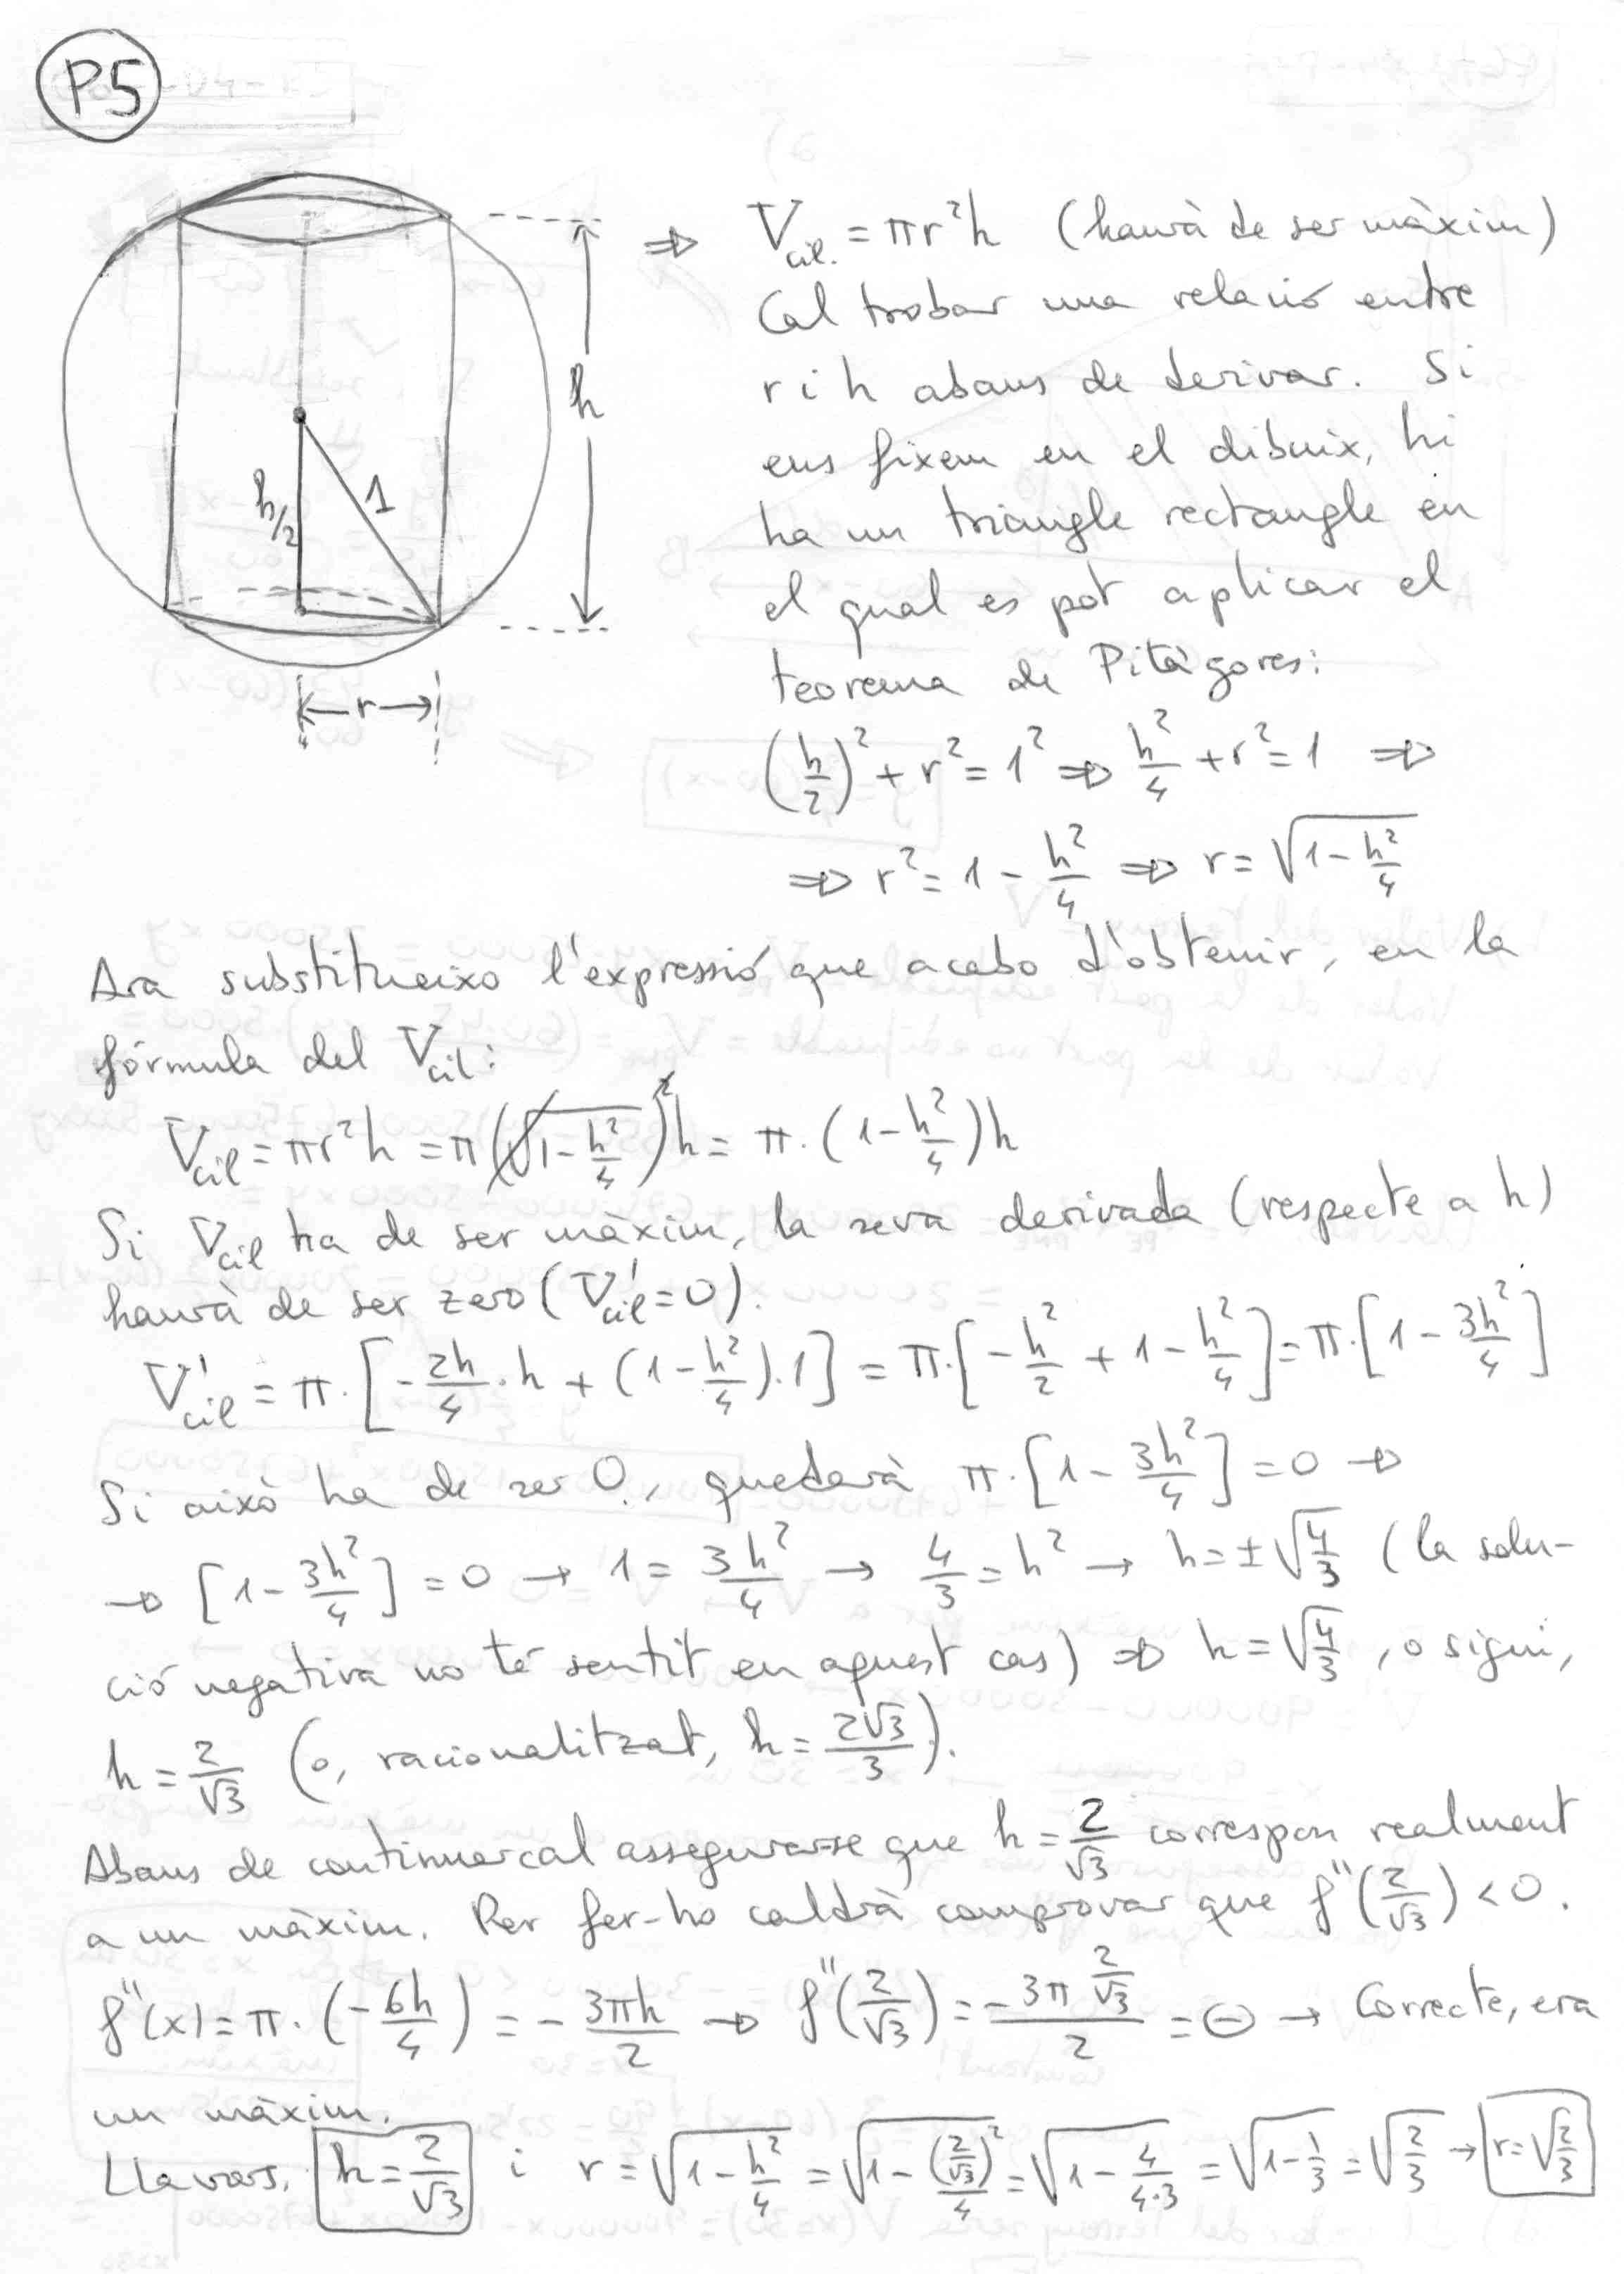 P5
⇒ V_cil. = πr²h (haurà de ser màxim)
Cal trobar una relació entre
r i h abans de derivar. Si
ens fixem en el dibuix, hi
ha un triangle rectangle en
el qual es pot aplicar el
teorema de Pitàgores:
h
h/2
1
r
(h/2)² + r² = 1² ⇒ h²/4 + r² = 1 ⇒
⇒ r² = 1 - h²/4 ⇒ r = √(1 - h²/4)
Ara substitueixo l'expressió que acabo d'obtenir, en la
fórmula del V_cil:
V_cil = πr²h = π(√(1 - h²/4))²h = π·(1 - h²/4)h
Si V_cil ha de ser màxim, la seva derivada (respecte a h)
haurà de ser zero (V'_cil = 0).
V'_cil = π·[-2h/4·h + (1 - h²/4)·1] = π·[-h²/2 + 1 - h²/4] = π·[1 - 3h²/4]
Si això ha de ser 0, quedarà π·[1 - 3h²/4] = 0 →
→ [1 - 3h²/4] = 0 → 1 = 3h²/4 → 4/3 = h² → h = ±√(4/3) (la solu-
ció negativa no té sentit en aquest cas) ⇒ h = √(4/3), o sigui,
h = 2/√3 (o, racionalitzat, h = 2√3/3).
Abans de continuar cal assegurar-se que h = 2/√3 correspon realment
a un màxim. Per fer-ho caldrà comprovar que f''(2/√3) < 0.
f''(x) = π·(-6h/4) = -3πh/2 → f''(2/√3) = -3π 2/√3 / 2 = ⊖ → Correcte, era
un màxim.
Llavors, h = 2/√3 i r = √(1 - h²/4) = √(1 - (2/√3)²/4) = √(1 - 4/(4·3)) = √(1 - 1/3) = √(2/3) → r = √(2/3)